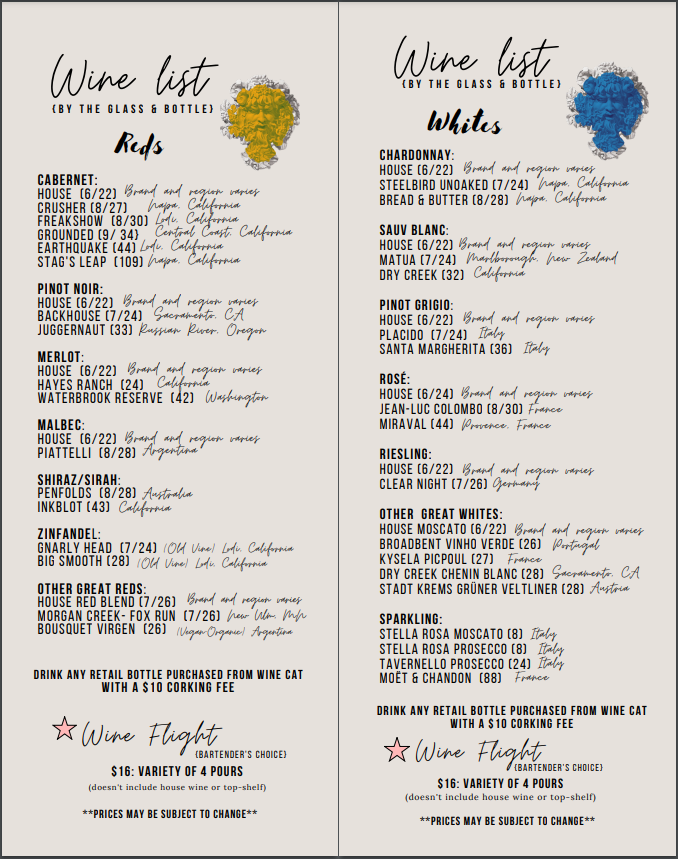 Wine list
(BY THE GLASS & BOTTLE)
Reds
CABERNET:
HOUSE (6/22) Brand and region varies
CRUSHER (8/27) Napa, California
FREAKSHOW (8/30) Lodi, California
GROUNDED (9/ 34) Central Coast, California
EARTHQUAKE (44) Lodi, California
STAG'S LEAP (109) Napa, California
PINOT NOIR:
HOUSE (6/22) Brand and region varies
BACKHOUSE (7/24) Sacramento, CA
JUGGERNAUT (33) Russian River, Oregon
MERLOT:
HOUSE (6/22) Brand and region varies
HAYES RANCH (24) California
WATERBROOK RESERVE (42) Washington
MALBEC:
HOUSE (6/22) Brand and region varies
PIATTELLI (8/28) Argentina
SHIRAZ/SIRAH:
PENFOLDS (8/28) Australia
INKBLOT (43) California
ZINFANDEL:
GNARLY HEAD (7/24) (Old Vine) Lodi, California
BIG SMOOTH (28) (Old Vine) Lodi, California
OTHER GREAT REDS:
HOUSE RED BLEND (7/26) Brand and region varies
MORGAN CREEK- FOX RUN (7/26) New Ulm, MN
BOUSQUET VIRGEN (26) (Vegan-Organic) Argentina
DRINK ANY RETAIL BOTTLE PURCHASED FROM WINE CAT
WITH A $10 CORKING FEE
Wine Flight
(BARTENDER'S CHOICE)
$16: VARIETY OF 4 POURS
(doesn't include house wine or top-shelf)
**PRICES MAY BE SUBJECT TO CHANGE**
Wine list
(BY THE GLASS & BOTTLE)
Whites
CHARDONNAY:
HOUSE (6/22) Brand and region varies
STEELBIRD UNOAKED (7/24) Napa, California
BREAD & BUTTER (8/28) Napa, California
SAUV BLANC:
HOUSE (6/22) Brand and region varies
MATUA (7/24) Marlborough, New Zealand
DRY CREEK (32) California
PINOT GRIGIO:
HOUSE (6/22) Brand and region varies
PLACIDO (7/24) Italy
SANTA MARGHERITA (36) Italy
ROSÉ:
HOUSE (6/24) Brand and region varies
JEAN-LUC COLOMBO (8/30) France
MIRAVAL (44) Provence, France
RIESLING:
HOUSE (6/22) Brand and region varies
CLEAR NIGHT (7/26) Germany
OTHER GREAT WHITES:
HOUSE MOSCATO (6/22) Brand and region varies
BROADBENT VINHO VERDE (26) Portugal
KYSELA PICPOUL (27) France
DRY CREEK CHENIN BLANC (28) Sacramento, CA
STADT KREMS GRÜNER VELTLINER (28) Austria
SPARKLING:
STELLA ROSA MOSCATO (8) Italy
STELLA ROSA PROSECCO (8) Italy
TAVERNELLO PROSECCO (24) Italy
MOËT & CHANDON (88) France
DRINK ANY RETAIL BOTTLE PURCHASED FROM WINE CAT
WITH A $10 CORKING FEE
Wine Flight
(BARTENDER'S CHOICE)
$16: VARIETY OF 4 POURS
(doesn't include house wine or top-shelf)
**PRICES MAY BE SUBJECT TO CHANGE**